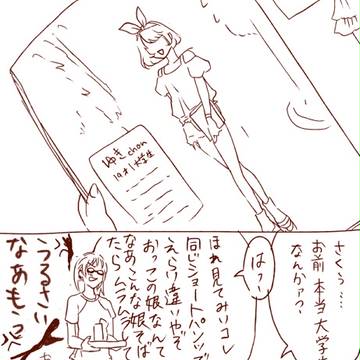 ゆきchan
19才/大学生
さくぅ…
お前本当大学
なんかァ?
はっ?
ほれ見てみいコレ
同じショートパンツで
えらい違いやぞ
おっこの娘なんて
なあこんな娘そば
たらムラムラ
うるさいッ
なあもうッ